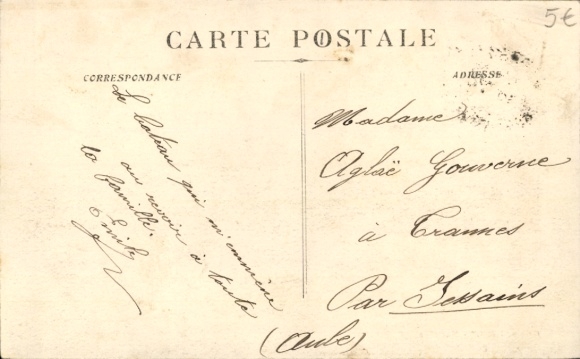 5€
CARTE POSTALE
CORRESPONDANCE
ADRESSE
Le bateau qui m'emmène
au revoir à toute
la famille.
Emile
Madame
Aglaë Gouverne
à Trannes
Par Jessains
(Aube).